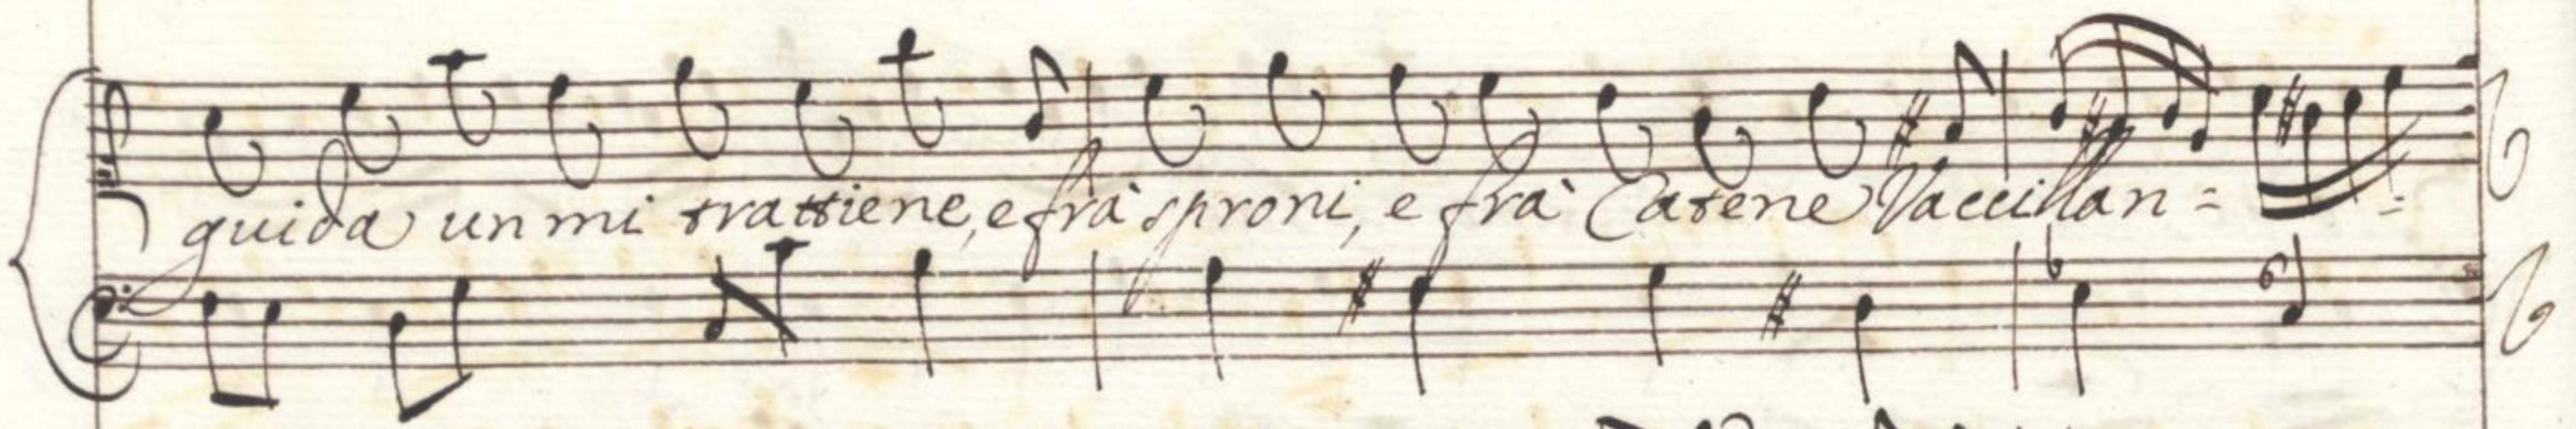 guida un mi trattiene, e frà sproni, e frà Catene Vaccillan=